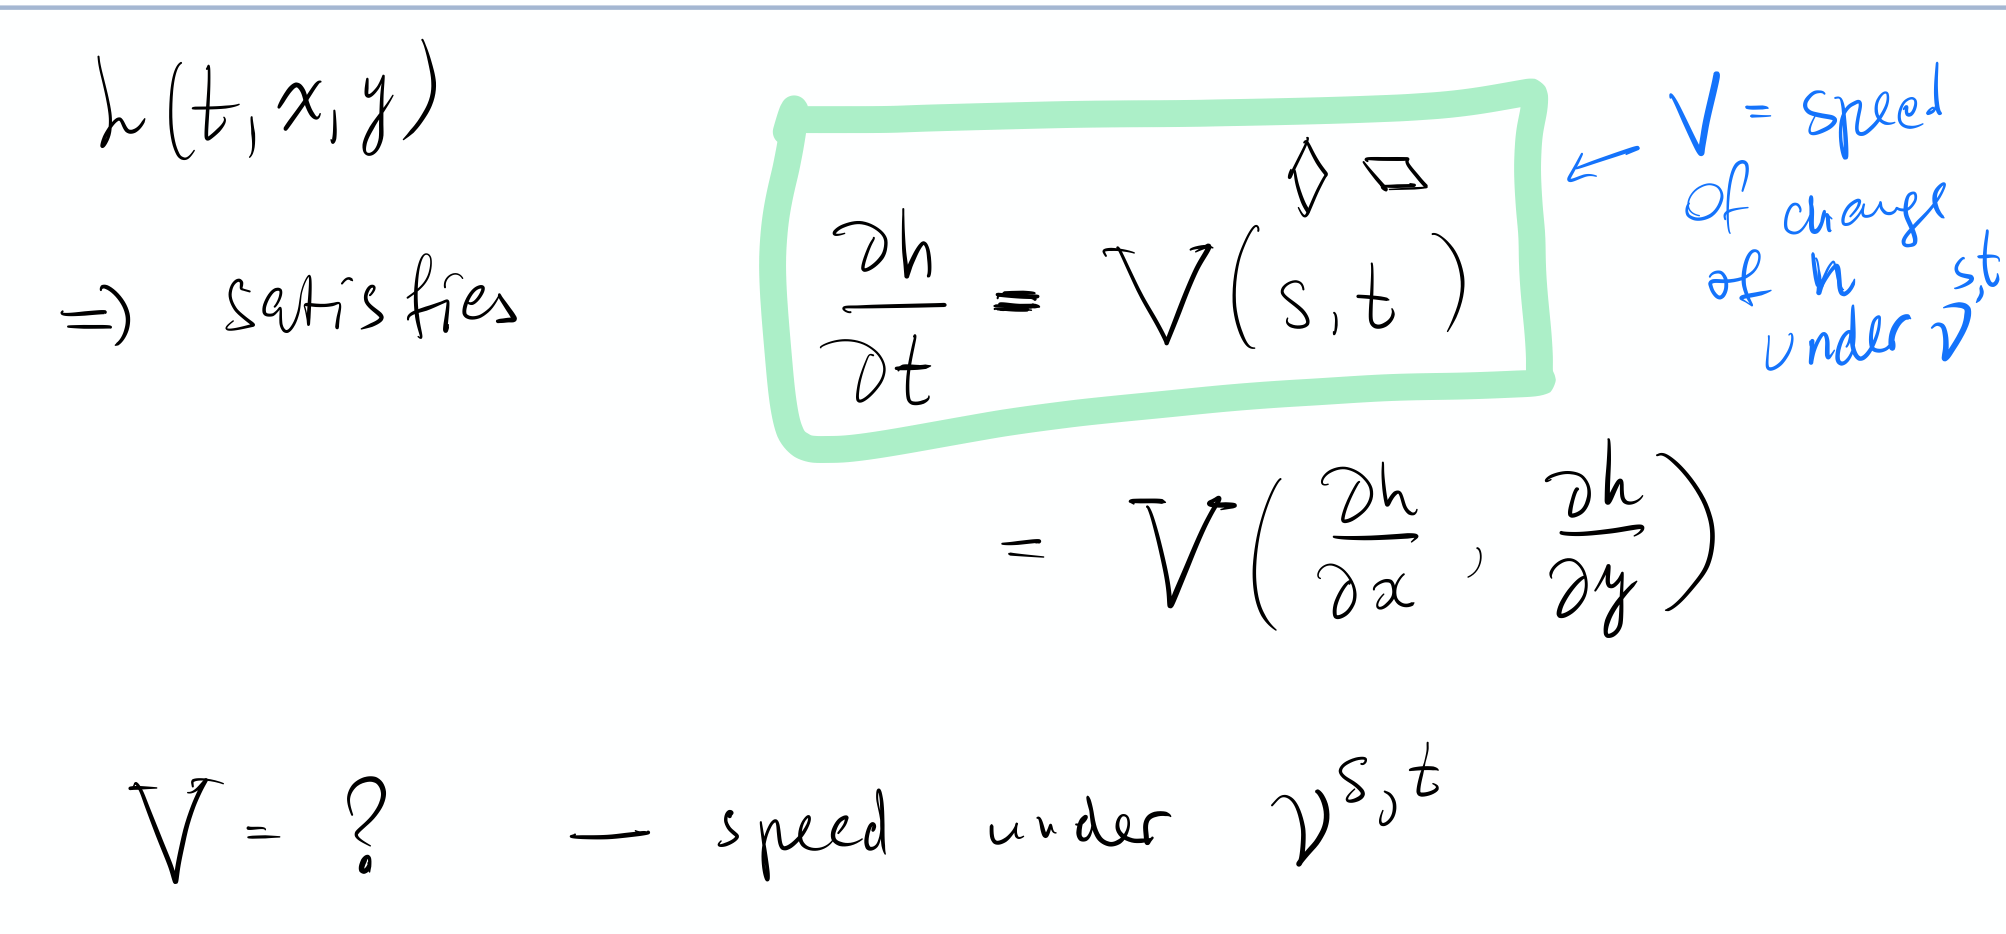 h(t, x, y)
⇒ satisfies ∂h/∂t = V(s, t)
V = speed
of change
of h
under ν^{s,t}
= V(∂h/∂x, ∂h/∂y)
V = ? — speed under ν^{s,t}